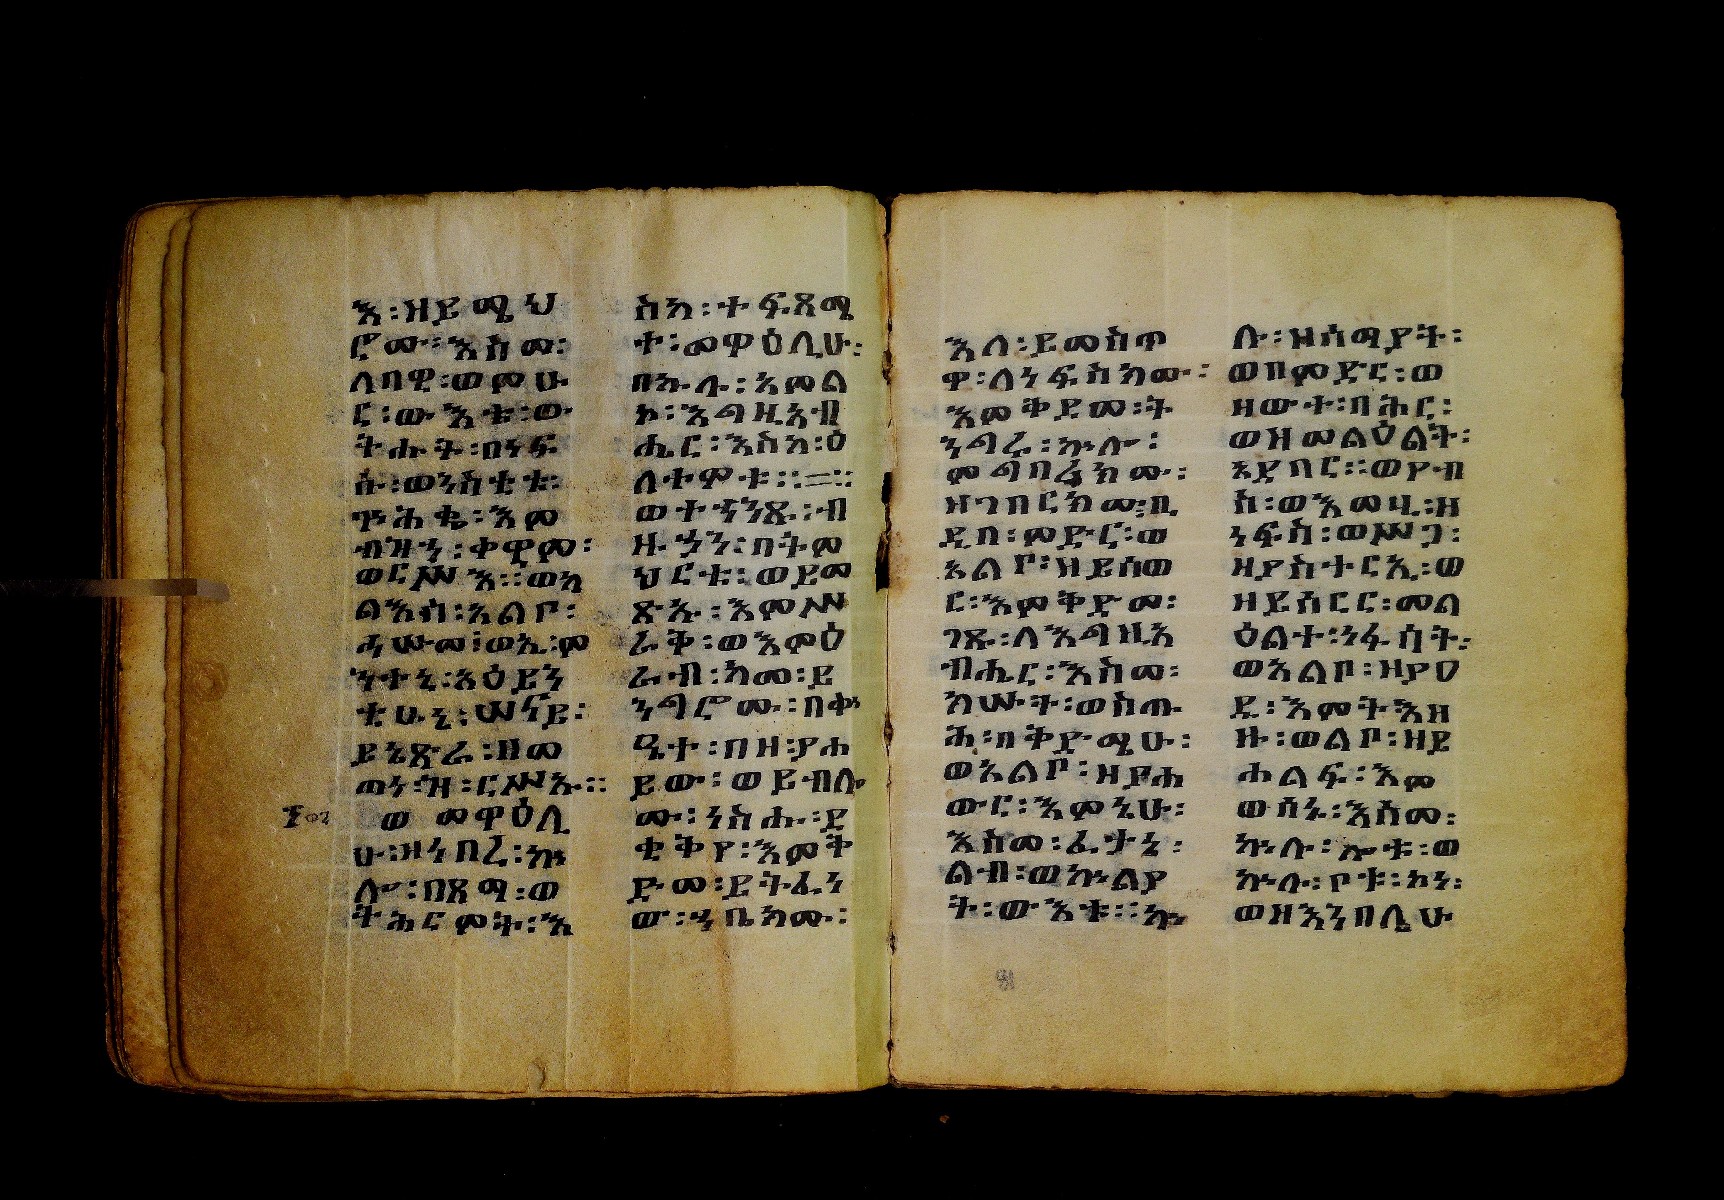 እ፡ዘይሜህ
ሮሙ፡እስመ፡
ለበዊ፡ወመሁ
ር፡ውእቱ፡ው
ትሑት፡በነፍ
ሱ፡ወንስቲቱ፡
ጥሕቄ፡እም
ብዝኀ፡ቀዋም፡
ወርሥእ።ወአ
ልአሰ፡አልቦ፡
ሐሠመ፡ወኢ፡ም
ንተኒ፡አዕይን
ቲሁኒ፡ሠናይ፡
ይኔጽራ፡ዘመ
ጠነ፡ዝ፡ርሥኡ።
ወ መዋዕሊ
ሁ፡ዘነበረ፡ኵ
ሎ፡በጾማ፡ወ
ትሕርምት፡እ
ስከ፡ተፍጻሜ
ተ፡መዋዕሊሁ፡
በኵሉ፡አምል
ኮ፡እግዚአብ
ሔር፡እስከ፡ዕ
ለተ፡ሞቱ።=።
ወተኀንጹ፡ብ
ዙኃን፡በትም
ህርቱ፡ወይመ
ጽኡ፡እምሥ
ራቅ፡ወእምዕ
ራብ፡ከመ፡ይ
ንግሮሙ፡በቍ
ዔተ፡በዘ፡ያሐ
ይው፡ወይብሎ
ሙ፡ነስሑ፡ደ
ቂቅየ፡እምቅ
ድመ፡ይትፈነ
ው፡ኀቤክሙ፡
እለ፡ይመስጥ
ዋ፡ለነፍስክሙ፡
እምቅደመ፡ት
ንግሩ፡ኵሎ፡
ምግባሪክሙ፡
ዘገበርክሙ፡በ
ዲበ፡ምድር፡ወ
አልቦ፡ዘይሰወ
ር፡እምቅድመ፡
ገጹ፡ለእግዚአ
ብሔር፡እስመ፡
ክሡት፡ወስጡ
ሕ፡በቅድሜሁ፡
ወአልቦ፡ዘያሐ
ውር፡እምኔሁ፡
እስመ፡ፈታኒ፡
ልብ፡ወኵልያ
ት፡ውእቱ።ኵ
ሉ፡ዘሰማያት፡
ወበምድር፡ወ
ዘውተ፡ባሕር፡
ወዘመልዕልት፡
አይበር።ወየብ
ስ፡ወእመዚ፡ዘ
ነፍስ፡ወሥጋ፡
ዘያስተርኢ፡ወ
ዘይሰርር፡መል
ዕልተ፡ነፋሳት፡
ወአልቦ፡ዘያዐ
ዲ፡እምትእዛ
ዙ፡ወልቦ፡ዘይ
ሐልፍ፡እም
ወሰኑ፡እስመ፡
ኵሉ፡ሎቱ፡ወ
ኵሉ፡ቦቱ፡ኮነ፡
ወዘእንበሌሁ